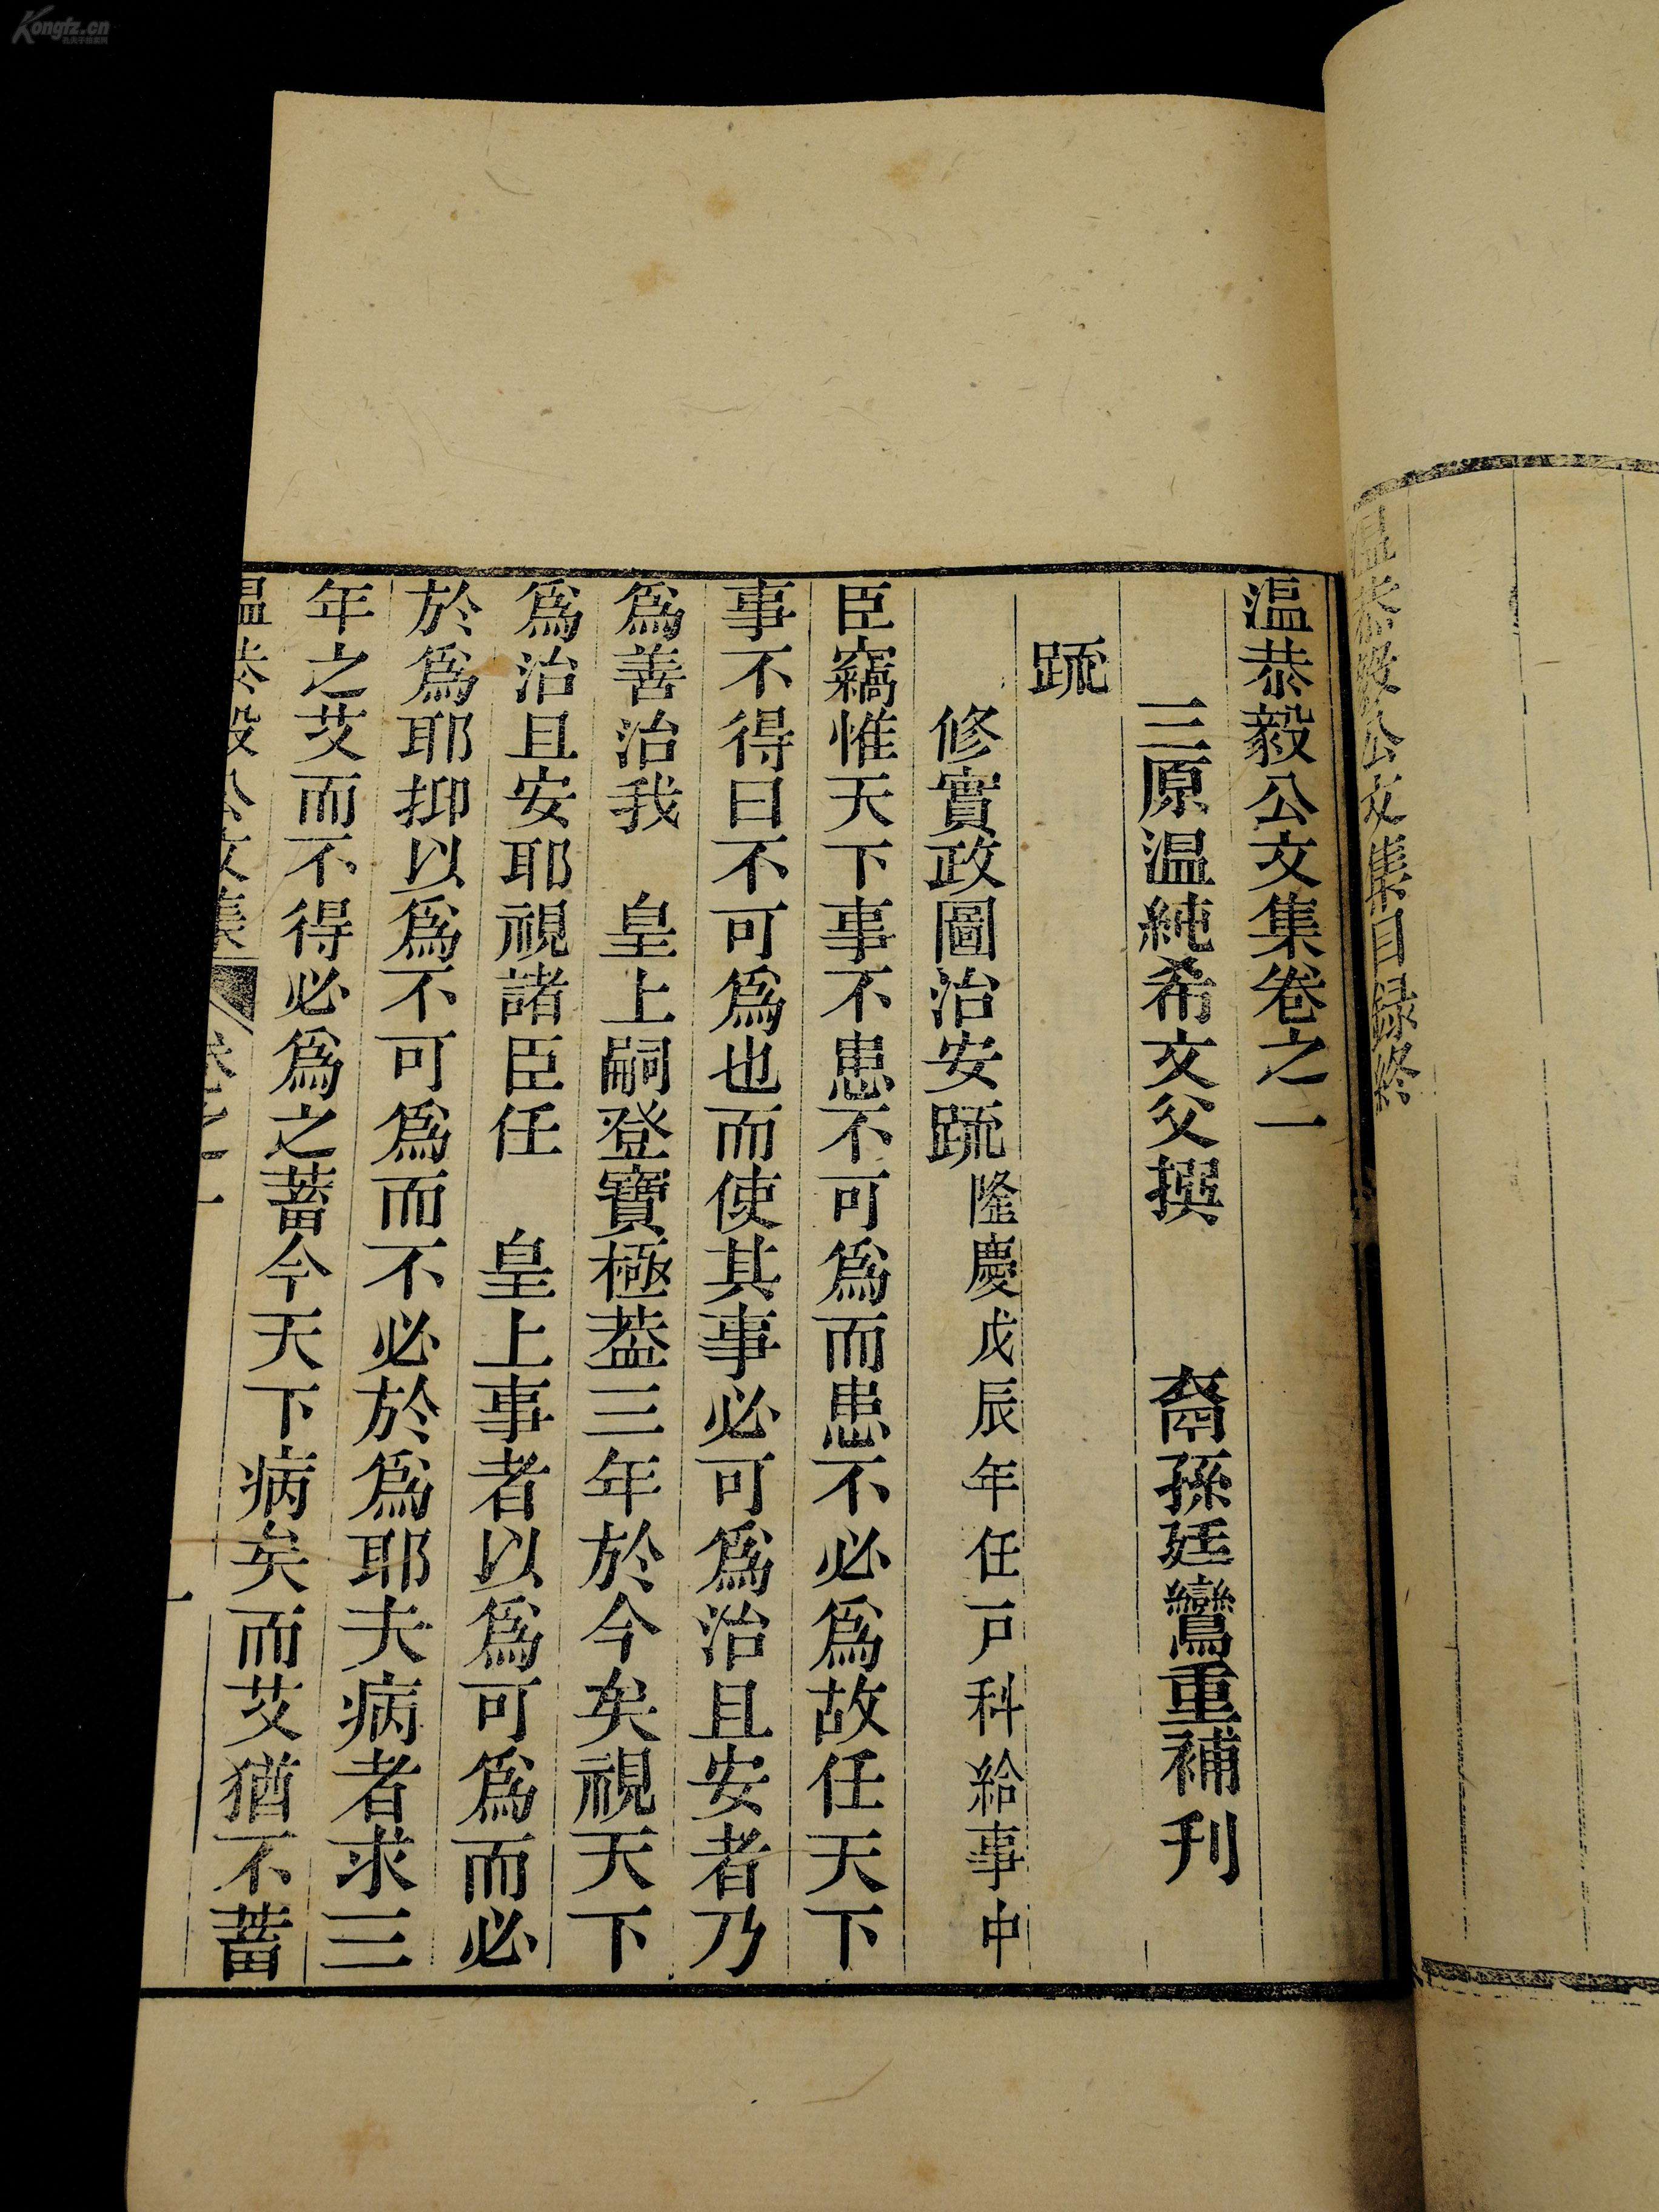 温恭毅公文集目録終
温恭毅公文集卷之一
三原温純希文父撰 裔孫廷鸞重補刊
䟽
修實政圖治安䟽 隆慶戊辰年任戸科給事中
臣竊惟天下事不患不可爲而患不必爲故任天下
事不得曰不可爲也而使其事必可爲治且安者乃
爲善治我 皇上嗣登寶極葢三年於今矣視天下
爲治且安耶視諸臣任 皇上事者以爲可爲而必
於爲耶抑以爲不可爲而不必於爲耶夫病者求三
年之艾而不得必爲之蓄今天下病矣而艾猶不蓄
温恭毅公文集 卷之一 一
Kongfz.cn